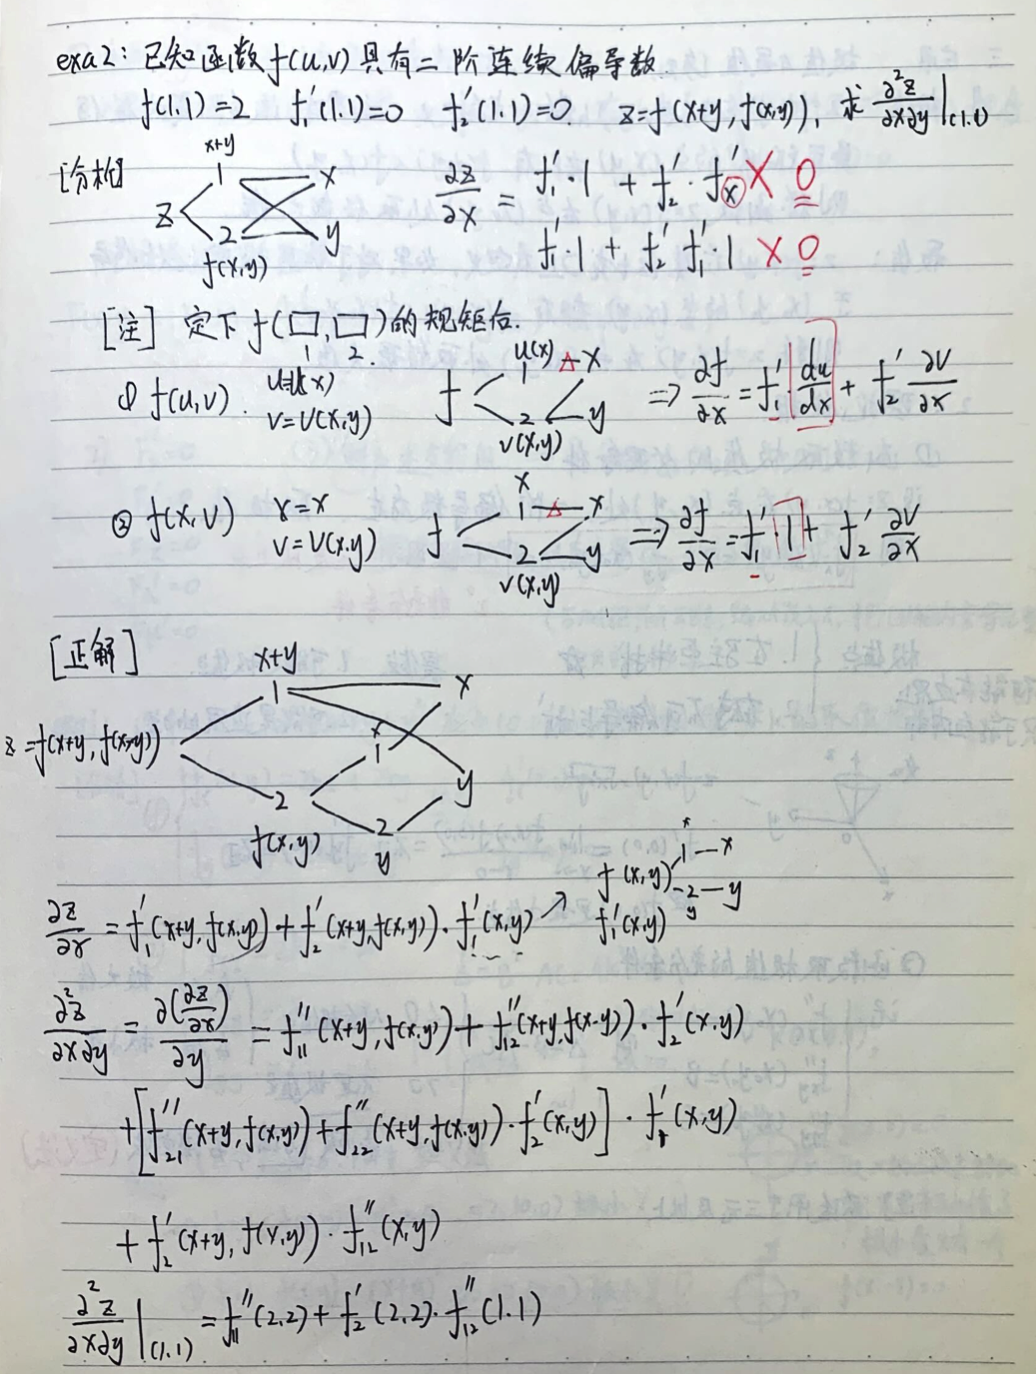 exa2: 已知函数f(u,v)具有二阶连续偏导数.
f(1.1)=2 f₁'(1.1)=0 f₂'(1.1)=0. z=f(x+y, f(x,y)), 求 ∂²z/∂x∂y|(1.1)
[分析]
x+y
1 x
z
2 y
f(x,y)
∂z/∂x = f₁'·1 + f₂'·fₓ' X 0
f₁'·1 + f₂' f₁'·1 X 0
[注] 定下f(□,□)的规矩后.
1 2.
① f(u,v). u=u(x) v=v(x,y)
f u(x) 1 △ x
2 y
v(x,y)
⇒ ∂f/∂x = f₁' · du/dx + f₂' ∂v/∂x
② f(x,v) x=x v=v(x.y)
f x 1 △ x
2 y
v(x,y)
⇒ ∂f/∂x = f₁'·1 + f₂' ∂v/∂x
[正解]
x+y
1 x
z=f(x+y, f(x,y))
x
1
2 y
f(x,y) 2
y
∂z/∂x = f₁'(x+y, f(x.y)) + f₂'(x+y, f(x,y))·f₁'(x,y) ↗
f(x,y) x 1 — x
2 — y
y
f₁'(x,y)
∂²z/∂x∂y = ∂(∂z/∂x)/∂y = f₁₁''(x+y, f(x.y)) + f₁₂''(x+y, f(x.y))·f₂'(x.y)
+[f₂₁''(x+y, f(x,y)) + f₂₂''(x+y, f(x.y))·f₂'(x,y)]·f₁'(x,y)
+ f₂'(x+y, f(x,y))·f₁₂''(x,y)
∂²z/∂x∂y|(1.1) = f₁₁''(2,2) + f₂'(2,2)·f₁₂''(1.1)